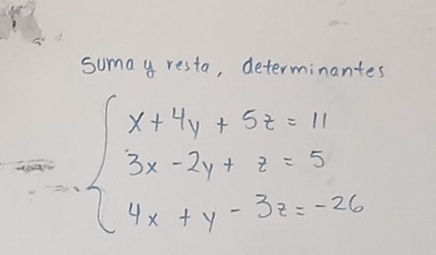 Suma y resta, determinantes
x + 4y + 5z = 11
3x - 2y + z = 5
4x + y - 3z = -26